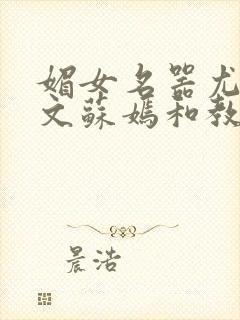 媚女名器尤
文蘇媽和教
晨浩